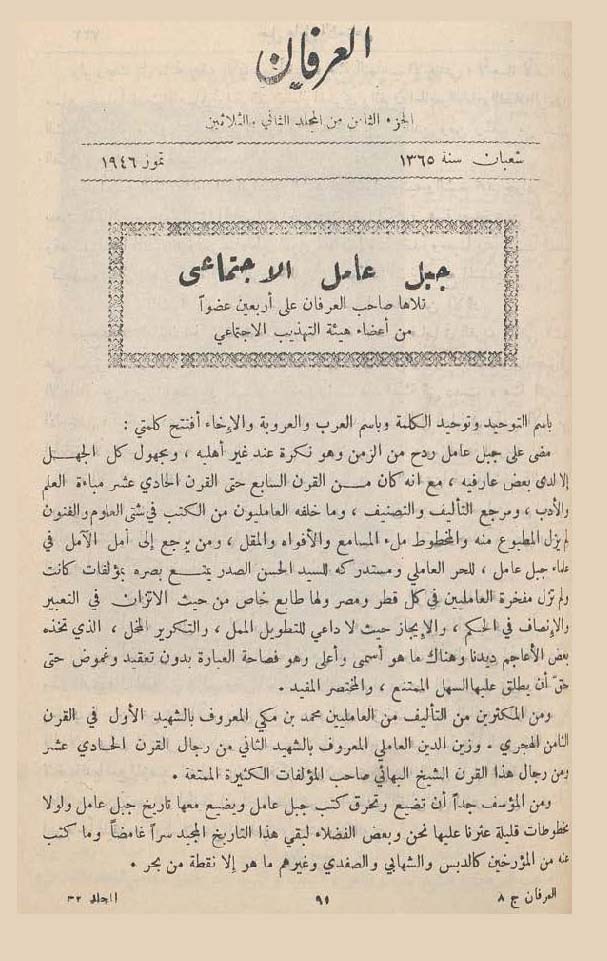 العرفان
الجزء الثامن من المجلد الثاني والثلاثين
شعبان سنة ١٣٦٥ تموز ١٩٤٦
جبل عامل الاجتماعى
تلاها صاحب العرفان على أربعين عضواً
من أعضاء هيئة التهذيب الاجتماعي
باسم التوحيد وتوحيد الكلمة وباسم العرب والعروبة والإخاء أفتتح كلمتي :
مضى على جبل عامل ردح من الزمن وهو نكرة عند غير أهليه ، ومجهول كل الجهل
إلا لدى بعض عارفيه ، مع انه كان من القرن السابع حتى القرن الحادي عشر مباءة العلم
والأدب ، ومرجع التأليف والتصنيف ، وما خلفه العامليون من الكتب في شتى العلوم والفنون
لم يزل المطبوع منه والمخطوط ملء المسامع والأفواه والمقل ، ومن يرجع إلى أمل الآمل في
علماء جبل عامل ، للحر العاملي ومستدركه للسيد الحسن الصدر يمتع بصره بمؤلفات كانت
ولم تزل مفخرة العامليين في كل قطر ومصر ولها طابع خاص من حيث الاتزان في التعبير
والإنصاف في الحكم ، والإيجاز حيث لا داعي للتطويل الممل ، والتكرير المخل ، الذي تخذه
بعض الأعاجم ديدنا وهناك ما هو أسمى وأعلى وهو فصاحة العبارة بدون تعقيد وغموض حتى
حقّ أن يطلق عليها السهل الممتنع ، والمختصر المفيد .
ومن المكثرين من التأليف من العامليين محمد بن مكي المعروف بالشهيد الأول في القرن
الثامن الهجري . وزين الدين العاملي المعروف بالشهيد الثاني من رجال القرن الحادي عشر
ومن رجال هذا القرن الشيخ البهائي صاحب المؤلفات الكثيرة الممتعة .
ومن المؤسف جداً أن تضيع وتحرق كتب جبل عامل ويضيع معها تاريخ جبل عامل ولولا
مخطوطات قليلة عثرنا عليها نحن وبعض الفضلاء لبقي هذا التاريخ المجيد سراً غامضاً وما كتب
عنه من المؤرخين كالدبس والشهابي والصفدي وغيرهم ما هو إلا نقطة من بحر .
العرفان ج ٨ ٩١ المجلد ٣٢